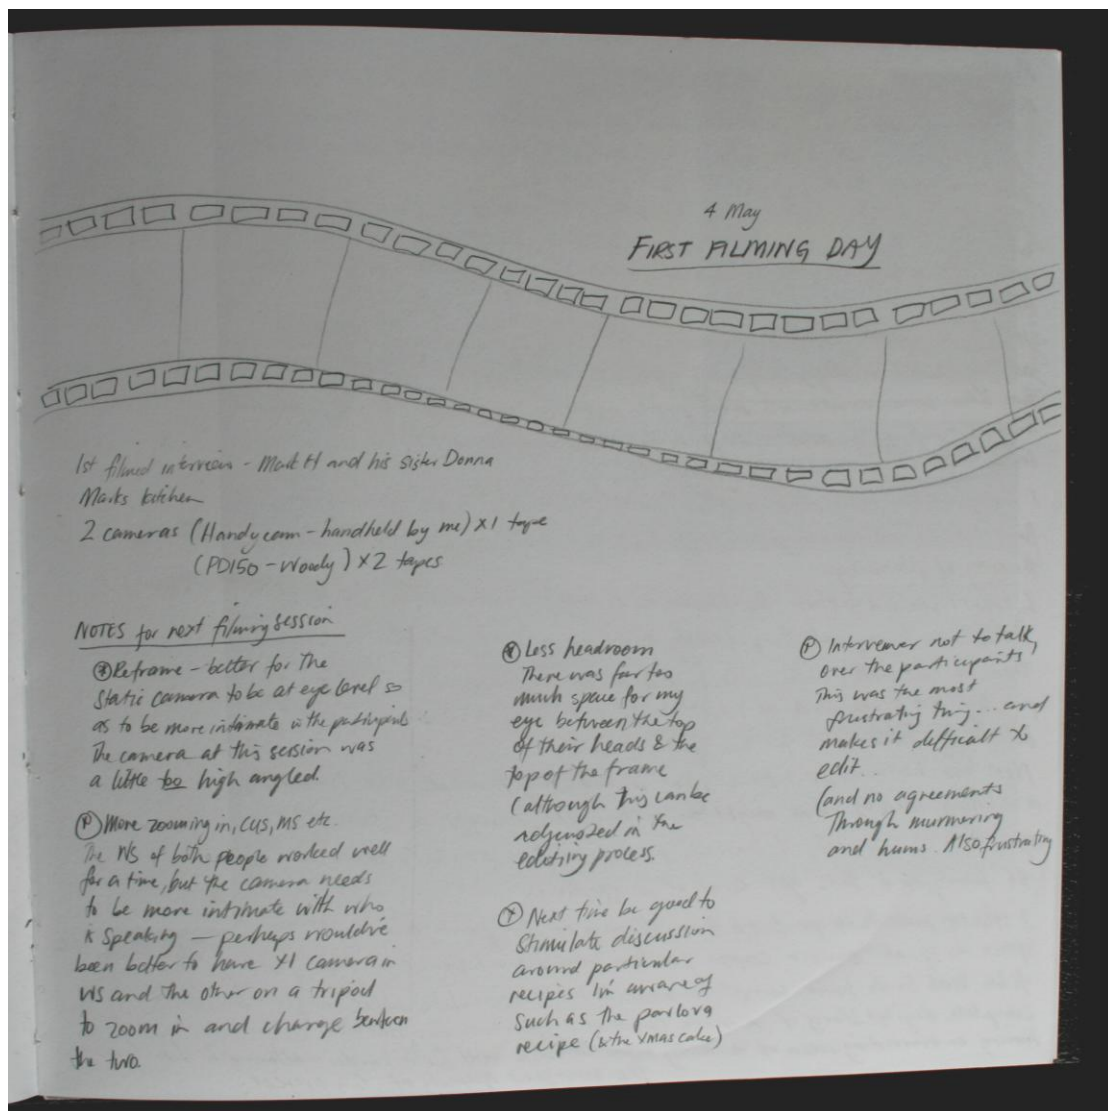 4 May
FIRST FILMING DAY
1st filmed interview - Mark H and his sister Donna
Marks kitchen
2 cameras (Handycam - handheld by me) x1 tape
(PD150 - Woody) x2 tapes
NOTES for next filming session
Reframe - better for the
static camera to be at eye level so
as to be more intimate w the participants
The camera at this session was
a little too high angled.
More zooming in, CUS, MS etc.
The WS of both people worked well
for a time, but the camera needs
to be more intimate with who
is speaking - perhaps would've
been better to have x1 camera in
WS and the other on a tripod
to zoom in and change between
the two.
Less headroom
There was far too
much space for my
eye between the top
of their heads & the
top of the frame
(although this can be
adjusted in the
editing process.
Next time be good to
stimulate discussion
around particular
recipes I'm aware of
such as the pavlova
recipe (& the Xmas cake)
Interviewer not to talk
over the participants,
This was the most
frustrating thing... and
makes it difficult to
edit..
(and no agreements
through murmering
and hums. Also frustrating